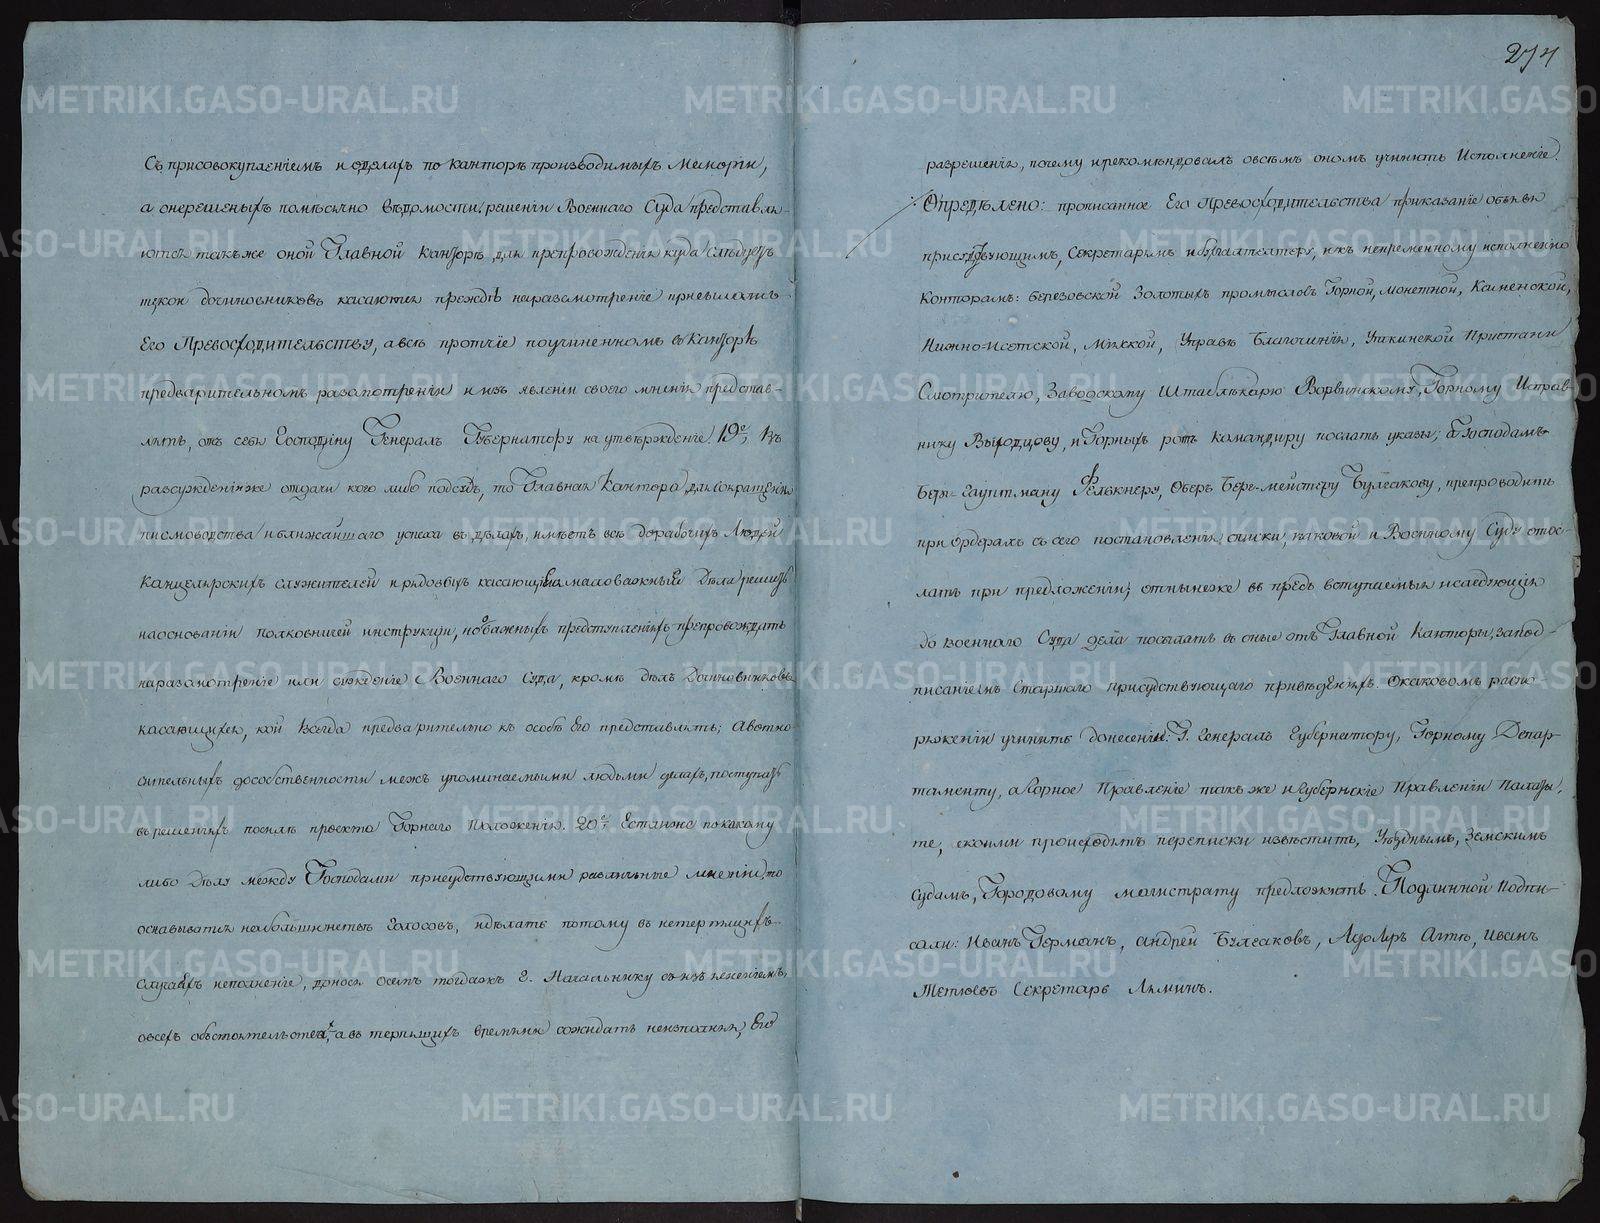 Съ присовокупленіемъ и одѣлахъ по канторѣ производимыхъ Мемориі,
а онерешеныхъ помѣсячно вѣдомости, решеніи Военнаго Суда представля-
ются также оной Главной Канторѣ для препровожденія куда слѣдуетъ
токои дочиновниковъ касаются прежде наразсмотреніе присылать
Его Превосходительству, а всѣ протчіе поучиненномъ въ Канторѣ
предварительномъ разсмотреніи и изъ явленіи своего мненія представ-
лять, отъ себя Господину Генералъ Губернатору на утвержденіе. 19е, въ
разсужденіи же отдачи кого либо подсудъ, то Главная Кантора для сокращенія
писмоводства и ближайшаго успеха въ делахъ, имѣетъ всѣ до рабочихъ Людей
Канцелярскихъ служителей и рядовыхъ касающіяся маловажныя Дѣла решить
наоснованіи полковничей инструкціи, но о важныхъ преступленіяхъ препровождать
наразсмотреніе или сужденіе Военнаго Суда, кромѣ дѣлъ Дочиновниковъ
касающихся, кои всегда предварительно къ особѣ Его представлять; авотно-
сительныхъ до собственности межъ упоминаемыми людьми делахъ, поступать
врешеніяхъ посилѣ проекта Горнаго Положенія. 20е, Естлиже покакому
либо Дѣлу между Господами присудствующими различные мненіи, то
оснавыватся на большинствѣ Голосовъ, и дѣлать потому въ нетерпящихъ
случаяхъ исполненіе, донося осемъ тогдажъ Г. Начальнику съ изъясненіемъ
овсехъ обстоятельствахъ, а въ терпящихъ времяни ожидать неисполняя, Его
274
разрешенія, почему ирекомендовалъ овсемъ ономъ учинить Исполненіе.
Опредѣлено: прописанное Его Превосходительства приказаніе объявя
присудствующимъ, Секретарямъ и бухгалтеру, и къ непременному исполненію
Конторамъ: березовской Золотыхъ промысловъ Горной, Монетной, Каменской,
Нижно-Исетской, Управѣ Благочинія, Уткинской Пристани
Смотрителю, Заводскому Штаблѣкарю Горному Исправ-
нику Выходцову, и Горныхъ ротъ командиру послать указы; а Господамъ
Берг-Гауптману Фелькнеру, Оберъ Берг-мейстеру Булгакову, препроводить
при Ордерахъ съ сего постановленія списки, каковой и Военному Суду отос-
лать при предложеніи; отнынеже въ предь вступаемыя и следующія
до военного Суда дела посылать въ оные отъ Главной Канторы, запод-
писаніемъ Старшаго присудствующаго Окаковомъ распо-
ряженіи учинить донесеніи: Г. Генералъ Губернатору, Горному Депар-
таменту, а Горное Правленіе такъ же и Губернскіе Правленіи Палаты,
те, скоими происходитъ переписки известить, Уѣзднымъ, Земскимъ
Судамъ, Городовому магистрату предложить. Подлинной подпи-
сали: Иванъ Германъ, андрей Булгаковъ, Иванъ
Секретарь Ляминъ.